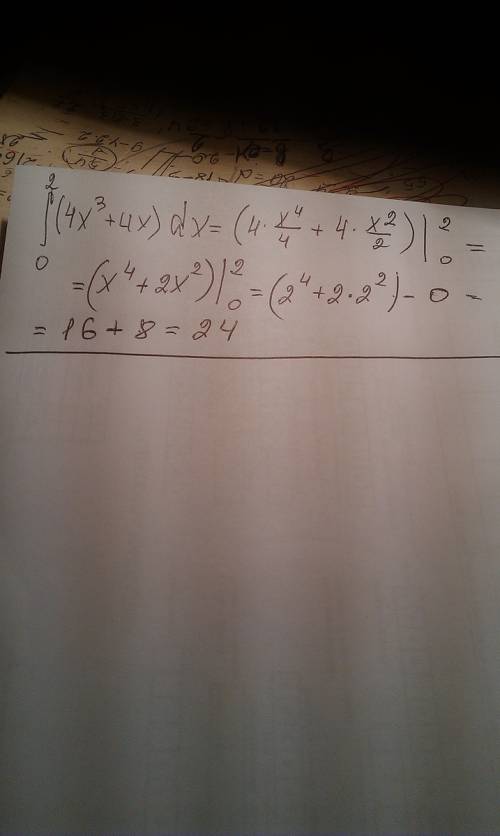 ∫₀² (4x³ + 4x) dx = (4 · x⁴/4 + 4 · x²/2) |₀² =
= (x⁴ + 2x²) |₀² = (2⁴ + 2·2²) - 0 =
= 16 + 8 = 24